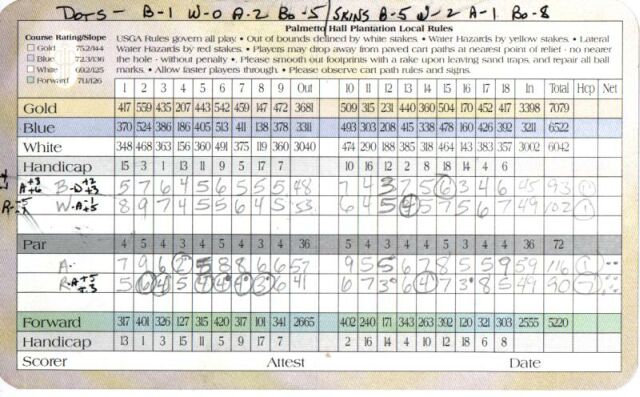 DOTS - B-1 W-0 A-2 Bo-5 / SKINS B-5 W-2 A-1 Bo-8
Palmetto Hall Plantation Local Rules
Course Rating/Slope
Gold 75.2/144
Blue 72.3/136
White 69.2/125
Forward 71.1/126
USGA Rules govern all play. • Out of bounds defined by white stakes. • Water Hazards by yellow stakes. • Lateral
Water Hazards by red stakes. • Players may drop away from paved cart paths at nearest point of relief - no nearer
the hole - without penalty • Please smooth out footprints with a rake upon leaving sand traps, and repair all ball
marks. • Allow faster players through. • Please observe cart path rules and signs.
1 2 3 4 5 6 7 8 9 Out 10 11 12 13 14 15 16 17 18 In Total Hcp Net
Gold 417 559 435 207 443 542 459 147 472 3681 509 315 231 440 360 504 170 452 417 3398 7079
Blue 370 524 386 186 405 513 411 138 378 3311 493 303 208 415 338 478 160 426 392 3211 6522
White 348 468 363 156 360 491 375 119 360 3040 474 290 188 385 318 464 143 383 357 3002 6042
Handicap 15 3 1 13 11 9 5 17 7 10 16 12 2 8 18 14 4 6
B 5 7 6 4 5 6 5 5 5 48 7 4 3 7 5 6 3 4 6 45 93
W 8 9 7 4 5 5 6 4 5 53 6 4 5 4 5 7 5 6 7 49 102
Par 4 5 4 3 4 5 4 3 4 36 5 4 3 4 4 5 3 4 4 36 72
A 7 9 6 2 5 8 8 6 6 57 9 5 5 6 7 8 5 5 9 59 116
R 5 6 4 5 4 4 4 3 6 41 6 7 3 6 4 7 3 8 5 49 90
Forward 317 401 326 127 315 420 317 101 341 2665 402 240 171 343 263 392 120 321 303 2555 5220
Handicap 13 1 3 15 11 5 9 17 7 2 16 14 4 10 12 18 6 8
Scorer Attest Date